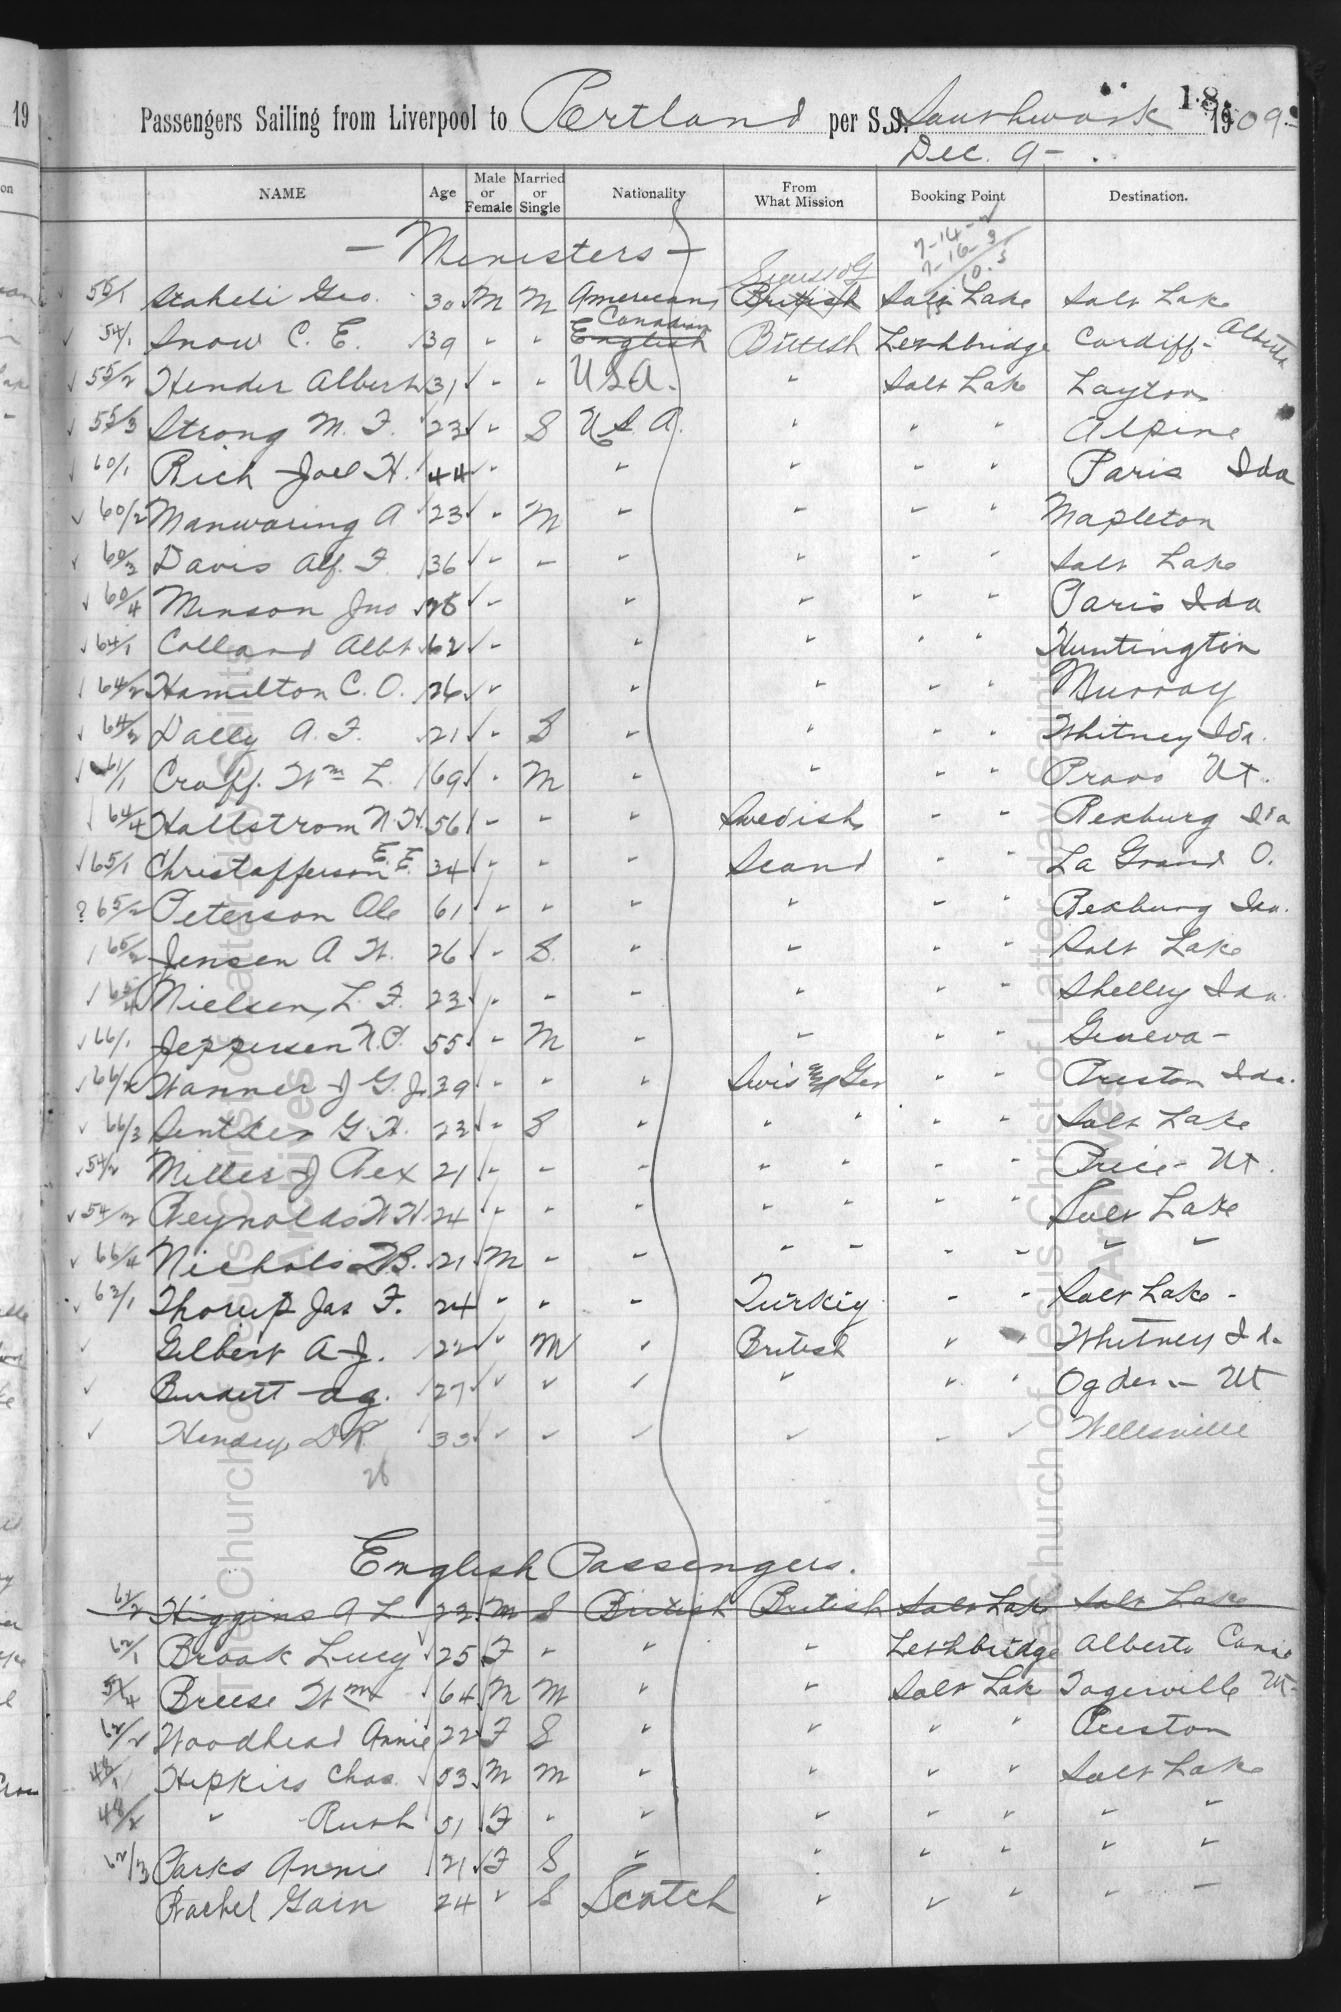 19
18.
Passengers Sailing from Liverpool to Portland per S.S. Southwark 1909
Dec. 9-
NAME Age Male or Female Married or Single Nationality From What Mission Booking Point Destination.
- Ministers - 7-14-2
7-16-3
10.5
55/1 Staheli Geo. 30 M M American British Salt Lake Salt Lake
54/1 Snow C. E. 39 " " English Canadian British Lethbridge Cardiff- Alberta
55/2 Hender Albert 31 " " USA. " Salt Lake Layton
55/3 Strong M. F. 23 " S U.S.A. " " " Alpine
60/1 Rich Joel H. 44 " " " " " Paris Ida
60/2 Manwaring A 23 " M " " " " Mapleton
60/3 Davis Alf. F. 36 " - " " " " Salt Lake
60/4 Minson Jno 28 " " " " " Paris Ida
64/1 Colland Albt 62 " " " " " Huntington
64/2 Hamilton C. O. 26 " " " " " Murray
64/3 Dally A. F. 21 " S " " " " Whitney Ida.
61/1 Croff. Wm L. 69 " M " " " " Provo Ut.
64/4 Hallstrom N. H. 56 " - " Swedish " " Rexburg Ida
65/1 Christofferson E. E. 34 " " " Scand " " La Grand O.
? 65/2 Peterson Ole 61 " " " " " " Rexburg Ida.
65/3 Jensen A W. 26 " S. " " " " Salt Lake
65/4 Nielsen, L. F. 23 " - - " " " Shelley Ida.
66/1 Jeppersen N.P. 55 " M " " " " Geneva -
66/2 Wanner J G. Jr 39 " - " Swis & Ger " " Preston Ida.
66/3 G. H. 23 " S " " " " " Salt Lake
54/2 Miller J Rex 21 " - - " " " " Price - Ut.
54/3 Reynolds W H 24 " - " " " " " Salt Lake
66/4 Nichols B. 21 M - - " " - - " "
63/1 Thorup Jas F. 24 " " - Turkiy - - Salt Lake -
Gilbert A J. 22 " M " British " " Whitney Ida
Burdett ag. 27 " " " " " " Ogden - Ut
Hendry D R 33 " " " " " " Wellsville
28
English Passengers.
62/2 Higgins A L 23 M S British British Salt Lake Salt Lake
62/1 Brook Lucy 25 F " " " Lethbridge Alberta Cana
54/4 Breese Wm 64 M M " " Salt Lak Togerville Ut-
62/2 Woodhead Annie 22 F S " " " " Preston
48/1 Hipkirs Chas. 53 M M " " " " Salt Lake
48/2 " Ruth 51 F " " " " " " "
62/3 Parks Annie 21 F S " " " " " "
Rachel Gain 24 " S Scotch " " " " "
The Church of Jesus Christ of Latter-day Saints
Archives
The Church of Jesus Christ of Latter-day Saints
Archives